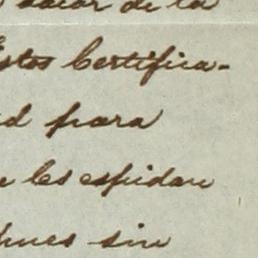 valor de la
Estos Certifica-
d para
e les espidan
pues sin